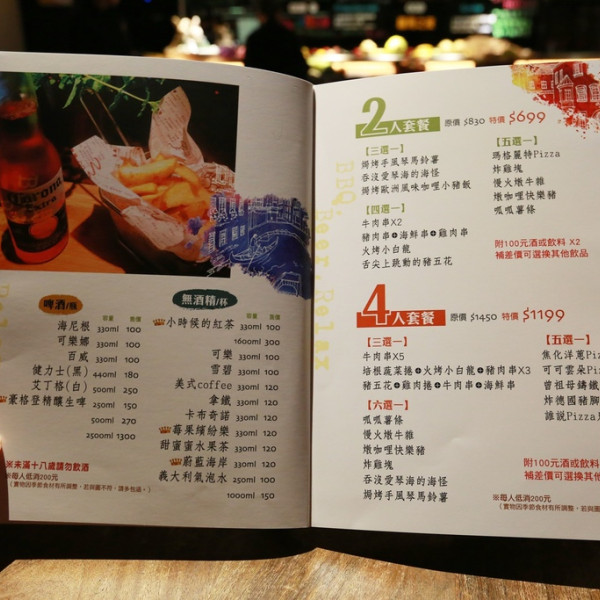 Corona
Extra
啤酒/瓶 容量 售價
海尼根 330ml 100
可樂娜 330ml 100
百威 330ml 100
健力士(黑) 440ml 180
艾丁格(白) 500ml 250
豪格登精釀生啤 250ml 150
500ml 270
2500ml 1300
無酒精/杯 容量 售價
小時候的紅茶 330ml 100
1600ml 300
可樂 330ml 100
雪碧 330ml 100
美式coffee 330ml 120
拿鐵 330ml 120
卡布奇諾 330ml 120
莓果繽紛樂 330ml 120
甜蜜蜜水果茶 330ml 120
蔚藍海岸 330ml 120
義大利氣泡水 250ml 120
1000ml 150
※未滿十八歲請勿飲酒
※每人低消200元
(實物因季節食材有所調整,若與圖不符,請多包涵。)
BBQ. Beer. Relax
2人套餐 原價 $830 特價 $699
【三選一】
焗烤手風琴馬鈴薯
吞沒愛琴海的海怪
焗烤歐洲風味咖哩小豬飯
【四選一】
牛肉串X2
豬肉串+海鮮串+雞肉串
火烤小白龍
舌尖上跳動的豬五花
【五選一】
瑪格麗特Pizza
炸雞塊
慢火燉牛雜
燉咖哩快樂豬
呱呱薯條
附100元酒或飲料 X2
補差價可選換其他飲品
4人套餐 原價 $1450 特價 $1199
【三選一】
牛肉串X5
培根蔬菜捲+火烤小白龍+豬肉串X3
豬五花+雞肉捲+牛肉串+海鮮串
【六選一】
呱呱薯條
慢火燉牛雜
燉咖哩快樂豬
炸雞塊
吞沒愛琴海的海怪
焗烤手風琴馬鈴薯
【五選一】
焦化洋蔥Pi
可可雲朵Pi
曾祖母鑄鐵
炸德國豬腳
誰說Pizza只
附100元酒或飲料
補差價可選換其
※每人低消200元
(實物因季節食材有所調整,若與圖